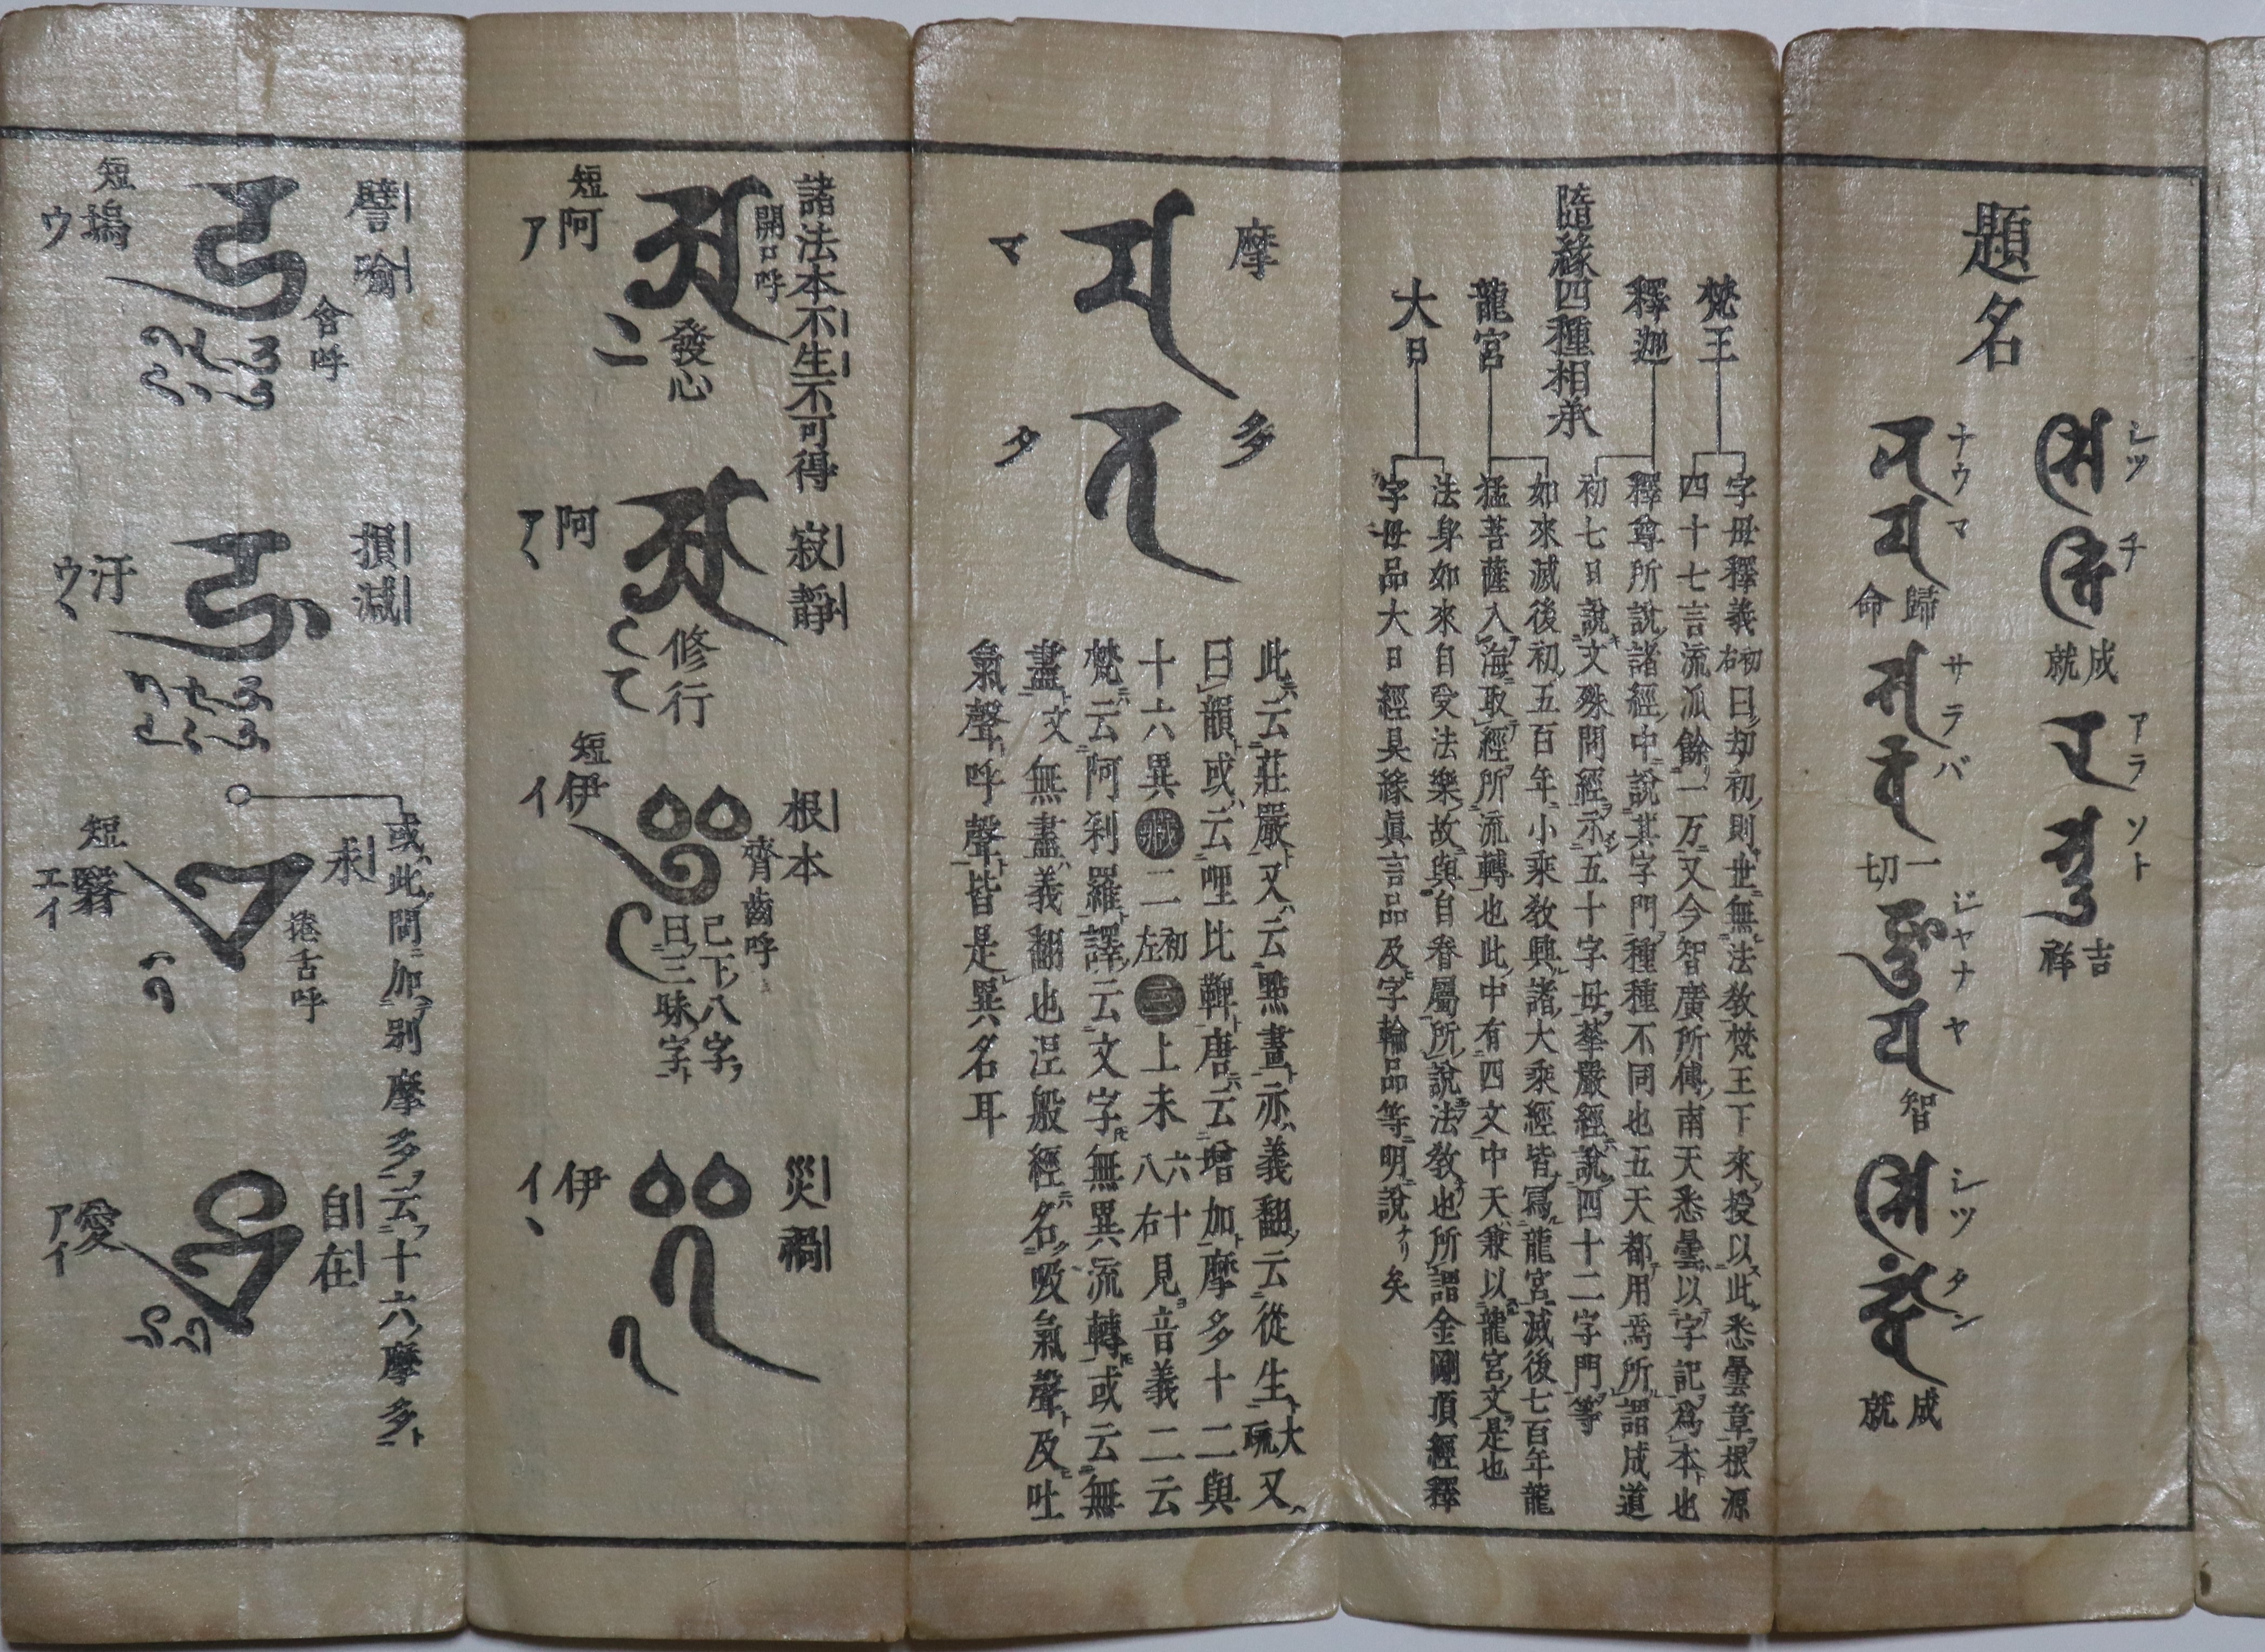 題名
𑖭𑖰𑖟𑖿𑖠𑖽
シツ
チ
成就
アラ
ソト
吉祥
𑖡𑖦𑖾
ナウマ
歸命
𑖭𑖨𑖿𑖪
サラバ
一切
ジヤナヤ
智
シツタン
成就
隨緣四種相承
梵王
字母釋義初右曰劫初則世無法教梵王下來授以此悉曇章根源
四十七言流派餘一万又今智廣所傳南天悉曇以字記爲本也
釋迦
釋尊所說諸經中說其字門種種不同也五天都用焉所謂成道
初七日說文殊問經示五十字母華嚴經說四十二字門等
龍宮
如來滅後初五百年小乘教興諸大乘經皆寫龍宮滅後七百年龍
猛菩薩入海取經所流轉也此中有四文中天兼以龍宮文是也
大日
法身如來自受法樂故與自眷屬所說法教也所謂金剛頂經釋
字母品大日經具緣眞言品及字輪品等明說ナリ矣
摩
𑖦
マ
多
𑖝
タ
此云莊嚴又云點畫亦義翻云從生大疏又
曰韻或云哩比鞞唐云增加摩多十二與
十六異藏二初左三上末六十八右見音義二云
梵云阿刹羅譯云文字無異流轉或云無
盡文無盡義翻也涅般經名吸氣聲及吐
氣聲呼聲皆是異名耳
諸法本不生不可得
開口呼
𑖀
短阿
ア
發心
寂靜
𑖁
阿
アヽ
修行
根本
齊齒呼
𑖂
短伊
イ
已下八字
曰三昧字
災禍
𑖃
伊
イヽ
譬喻
合呼
𑖄
短塢
ウ
損減
𑖅
汙
ウヽ
或此間加別摩多云十六摩多
求
捲舌呼
𑖊
短翳
エイ
自在
𑖋
愛
アイ